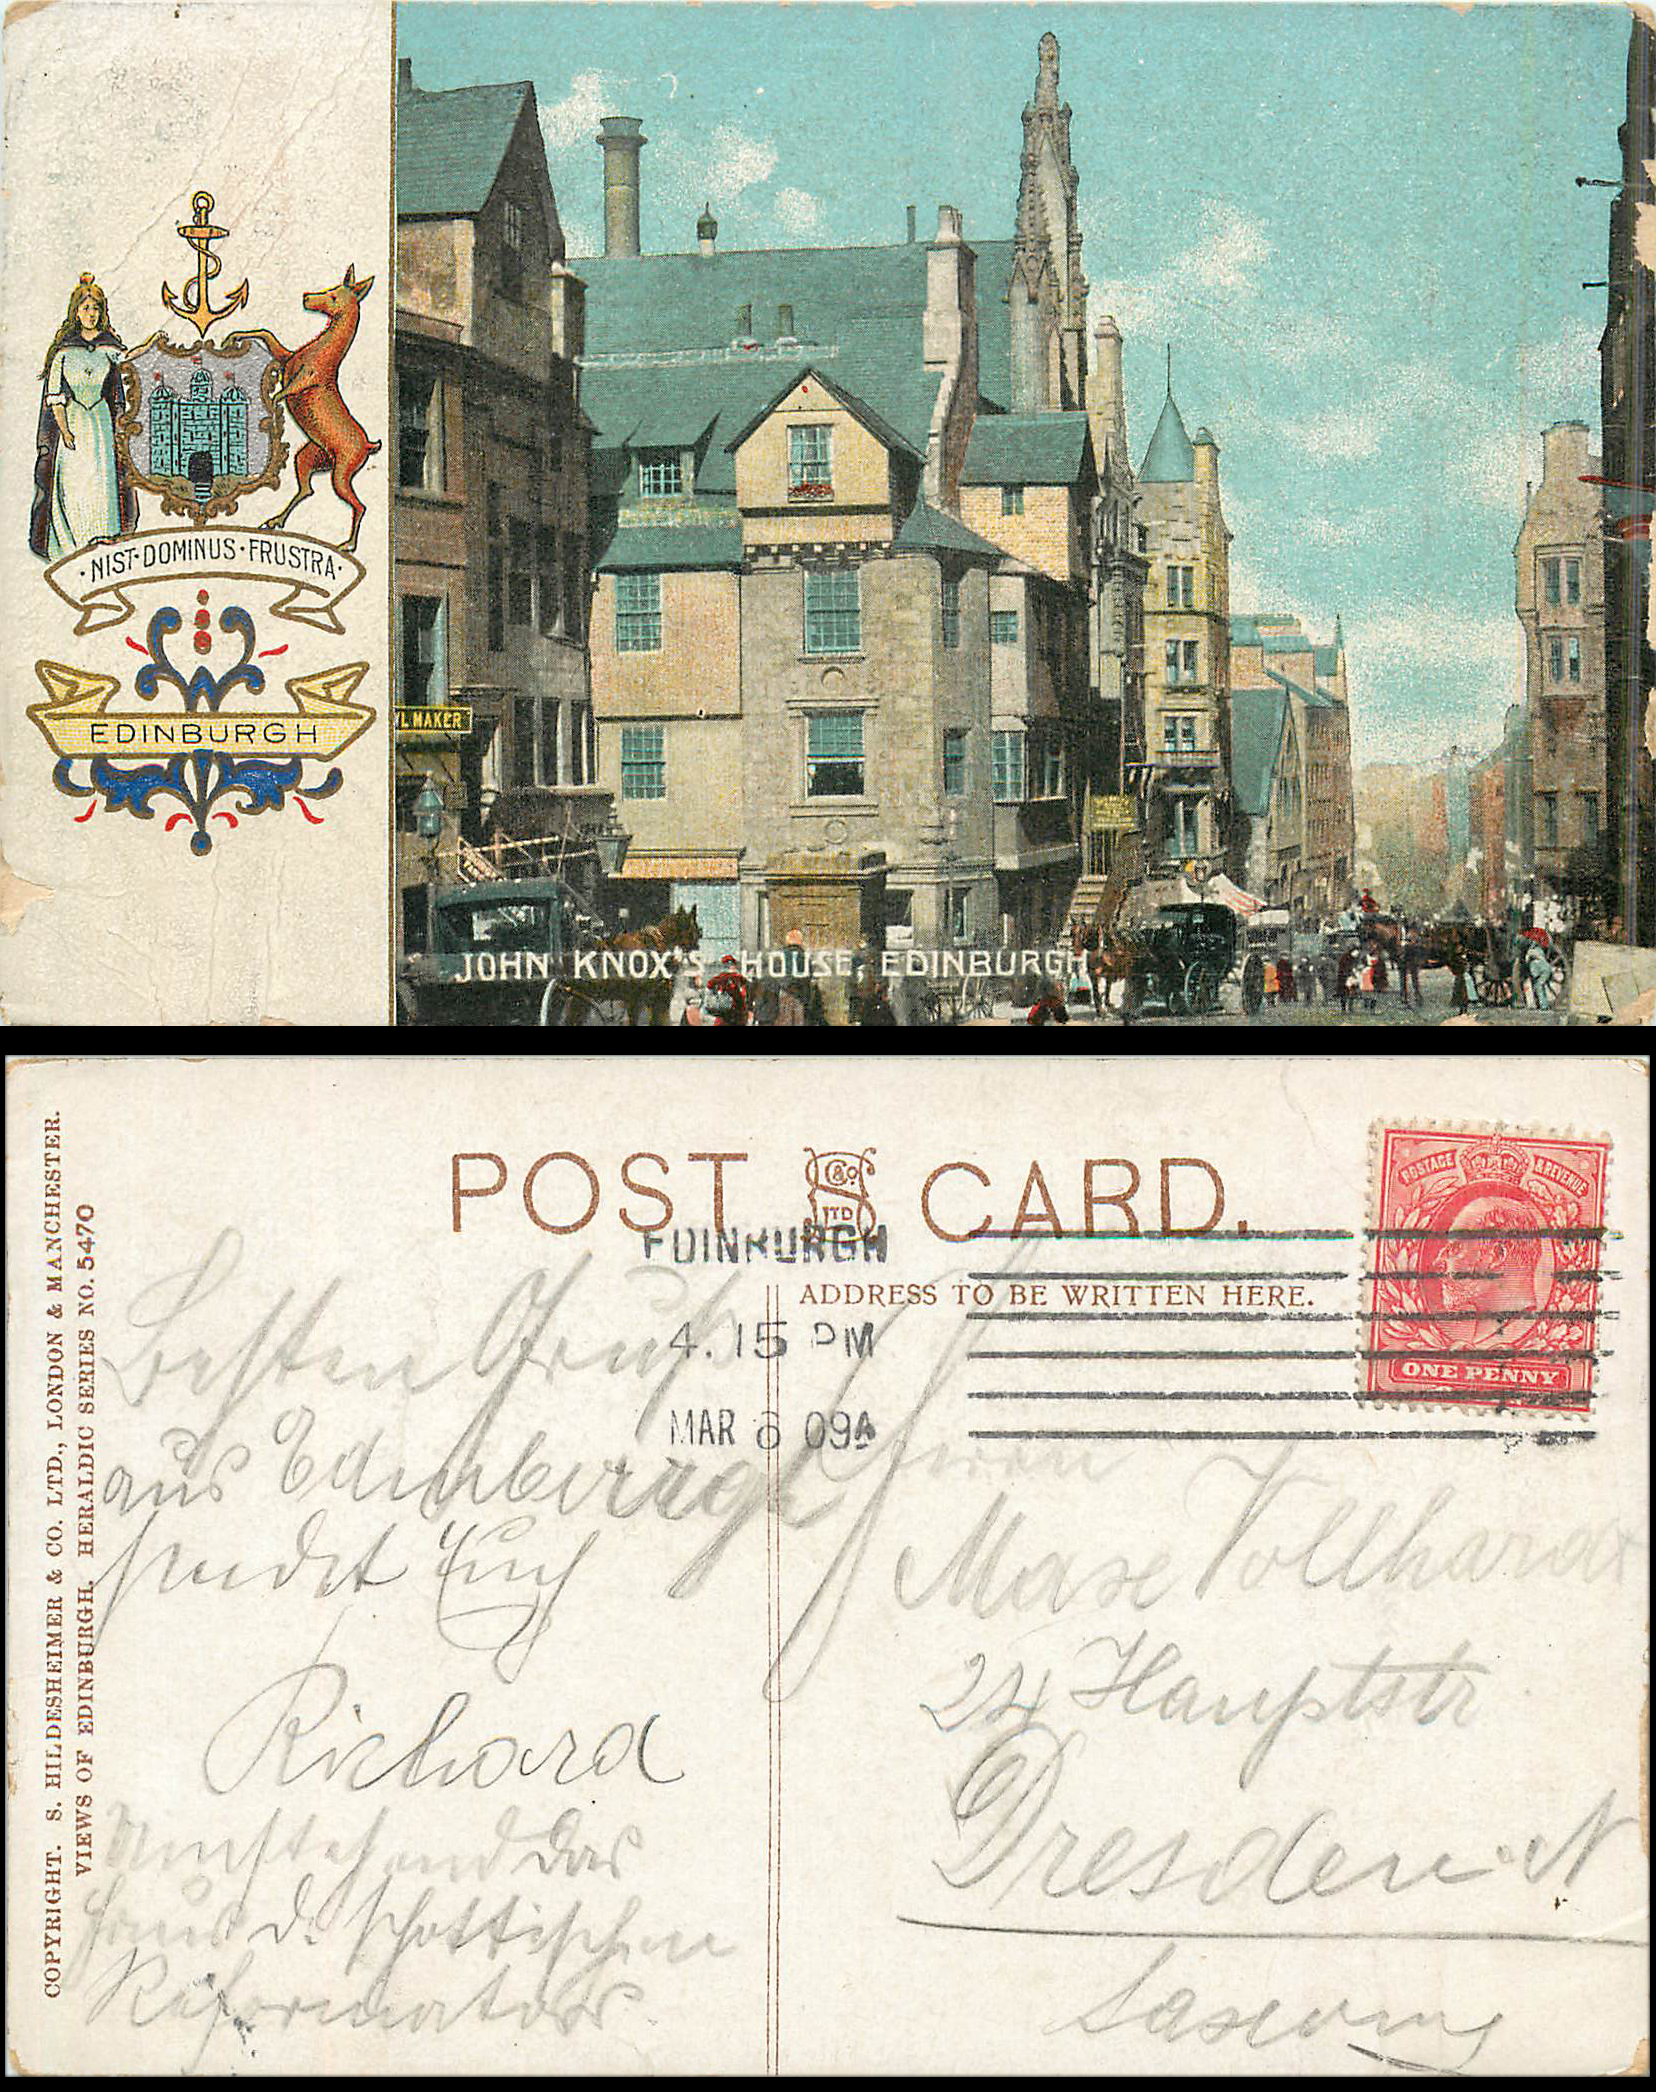 ·NIST·DOMINUS·FRUSTRA·
EDINBURGH
L MAKER
JOHN KNOX'S HOUSE, EDINBURGH
COPYRIGHT. S. HILDESHEIMER & CO. LTD., LONDON & MANCHESTER.
VIEWS OF EDINBURGH. HERALDIC SERIES NO. 5470
POST S &Co LTD CARD.
EDINBURGH
4. 15 PM
MAR 6 09
ADDRESS TO BE WRITTEN HERE.
POSTAGE & REVENUE
ONE PENNY
Besten Gruß
aus Edinburgh
sendet Euch
Richard
Umstehend das
Haus d. schottischen
Reformators
Herrn
Max Vollhardt
24 Hauptstr
Dresden-N
Saxony